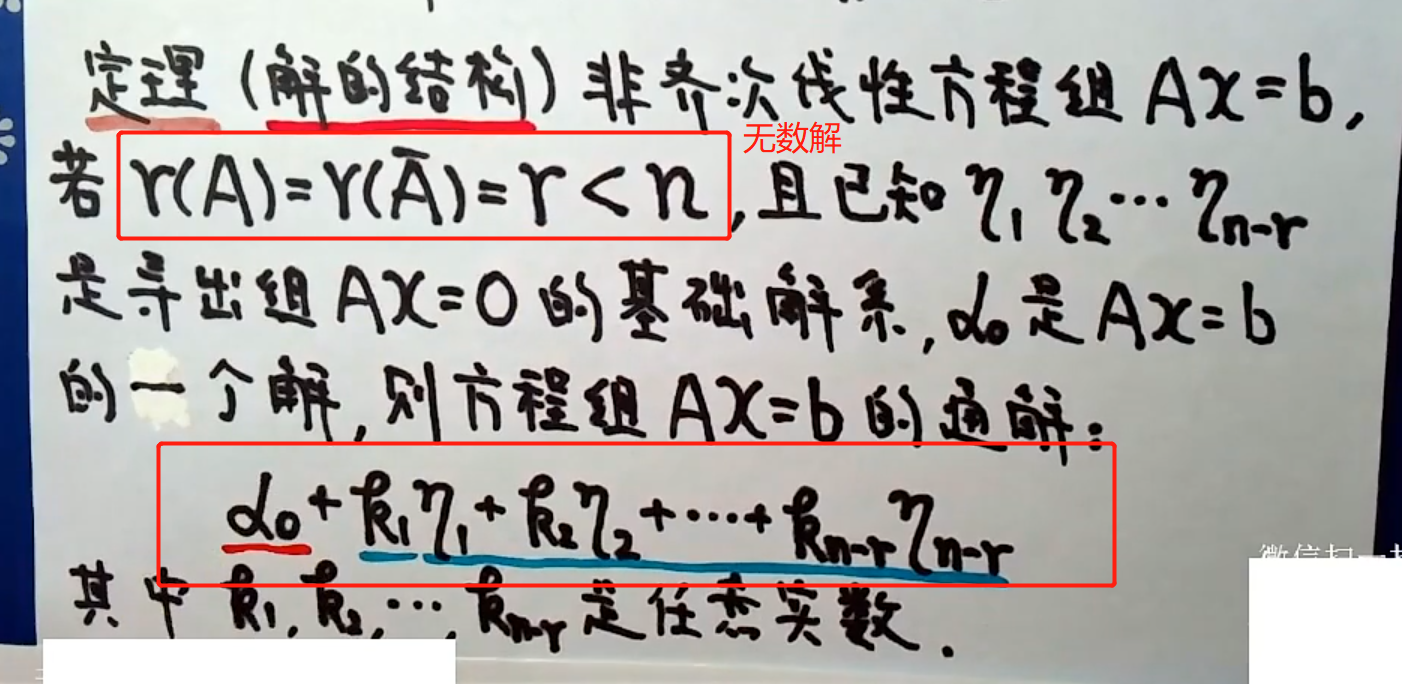 定理(解的结构)非齐次线性方程组 Ax=b,
无数解
若 r(A)=r(Ā)=r<n,且已知 η₁ η₂ … ηₙ₋ᵣ
是导出组 Ax=0 的基础解系,α₀ 是 Ax=b
的一个解,则方程组 Ax=b 的通解:
α₀+k₁η₁+k₂η₂+…+kₙ₋ᵣηₙ₋ᵣ
其中 k₁,k₂,…,kₙ₋ᵣ 是任意实数.